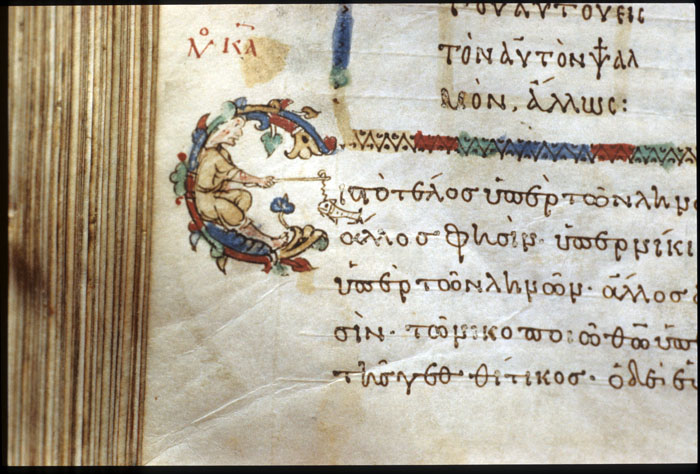 ΤΟΥ ΑΥΤΟΥ ΕΙΣ
ΤΟΝ ΑΥΤΟΝ ΨΑΛ
ΜΟΝ, ἌΛΛΩΣ:
Εἰς τὸ τέλος ὑπὲρ τῶν ληνῶ
ἄλλος φησὶν· ὑπὲρ νικ
ὑπὲρ τῶν ληνῶν· ἄλλος
σὶν· τῶ νικοποιῶ θῶ ὑπ
τῆς γεθθίτικος· ὁ δὲ εἰ